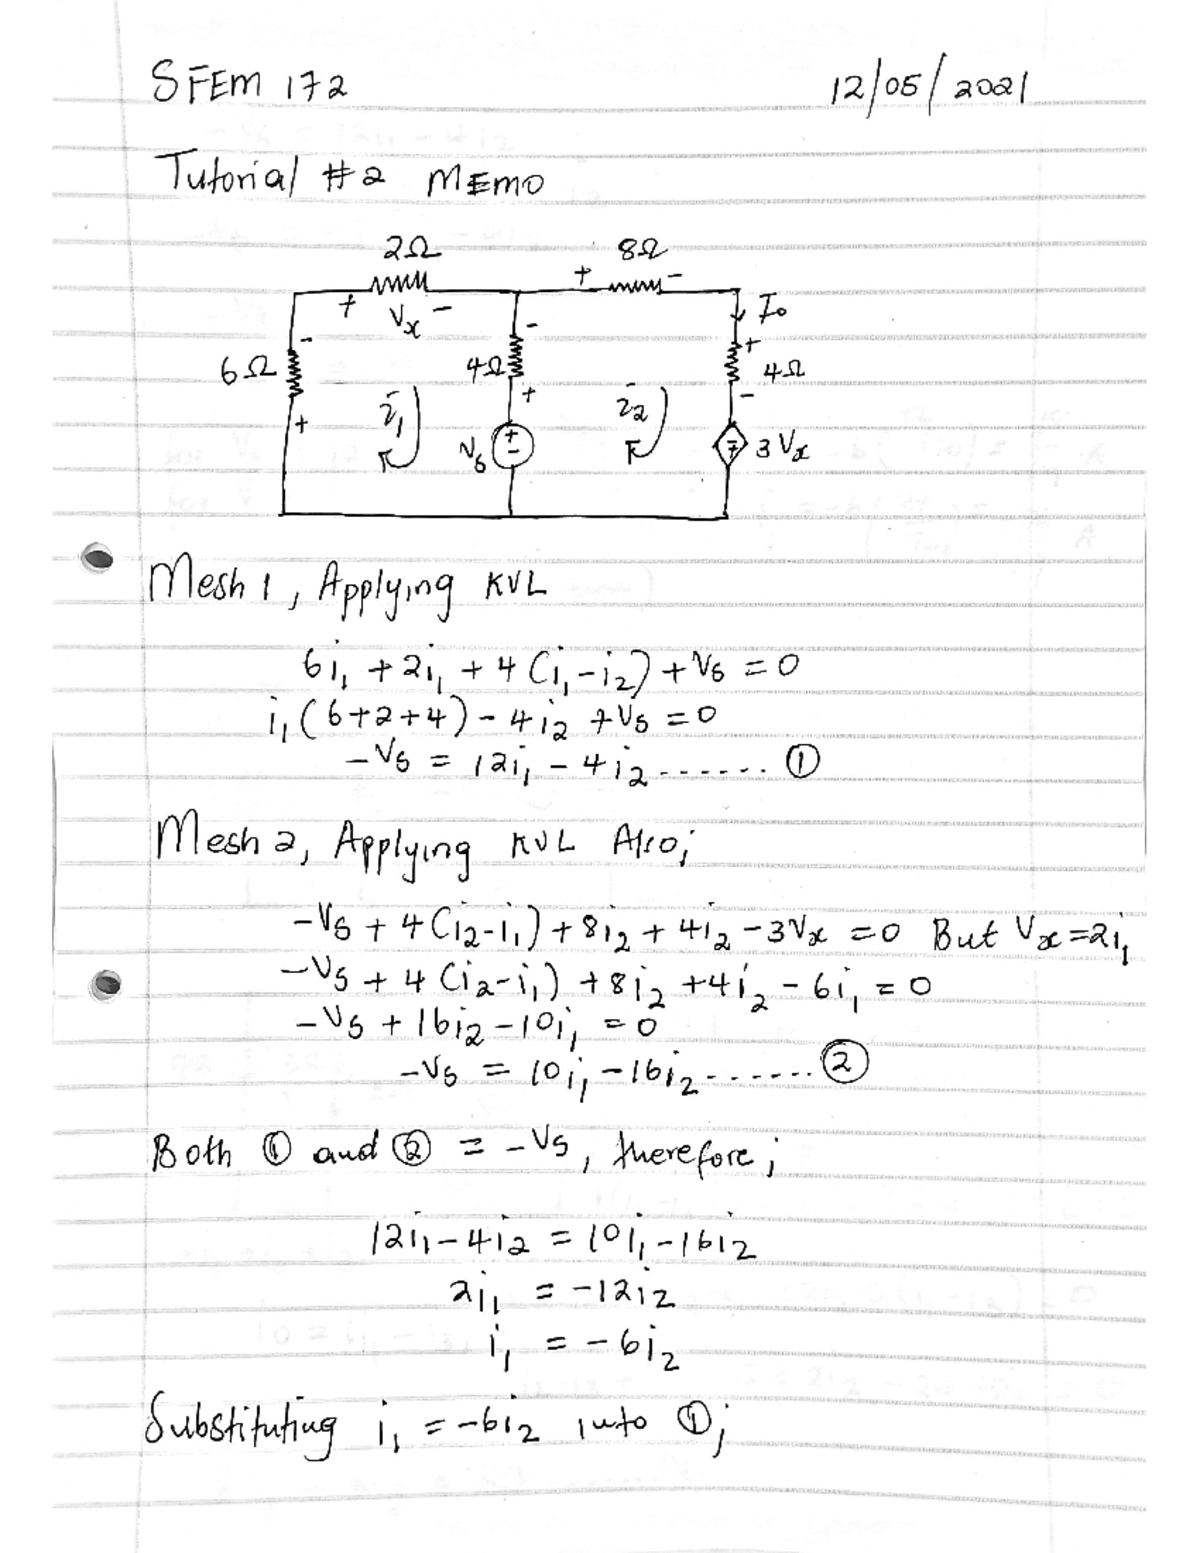 SFEM 172 12/05/2021
Tutorial #2 MEMO
2Ω 8Ω
+ Vx - + -
I₀
6Ω - + 4Ω - + 4Ω + -
i₁ Vs + - i₂ 3Vx
Mesh 1, Applying KVL
6i₁ + 2i₁ + 4(i₁-i₂) + Vs = 0
i₁(6+2+4) - 4i₂ + Vs = 0
-Vs = 12i₁ - 4i₂ ...... ①
Mesh 2, Applying KVL Also;
-Vs + 4(i₂-i₁) + 8i₂ + 4i₂ - 3Vx = 0 But Vx = 2i₁
-Vs + 4(i₂-i₁) + 8i₂ + 4i₂ - 6i₁ = 0
-Vs + 16i₂ - 10i₁ = 0
-Vs = 10i₁ - 16i₂ ....... ②
Both ① and ② = -Vs, therefore;
12i₁ - 4i₂ = 10i₁ - 16i₂
2i₁ = -12i₂
i₁ = -6i₂
Substituting i₁ = -6i₂ into ①;